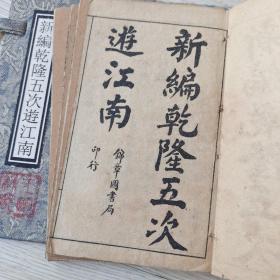 新編乾隆五次
遊江南
錦章圖書局
印行
新編乾隆五次遊江南